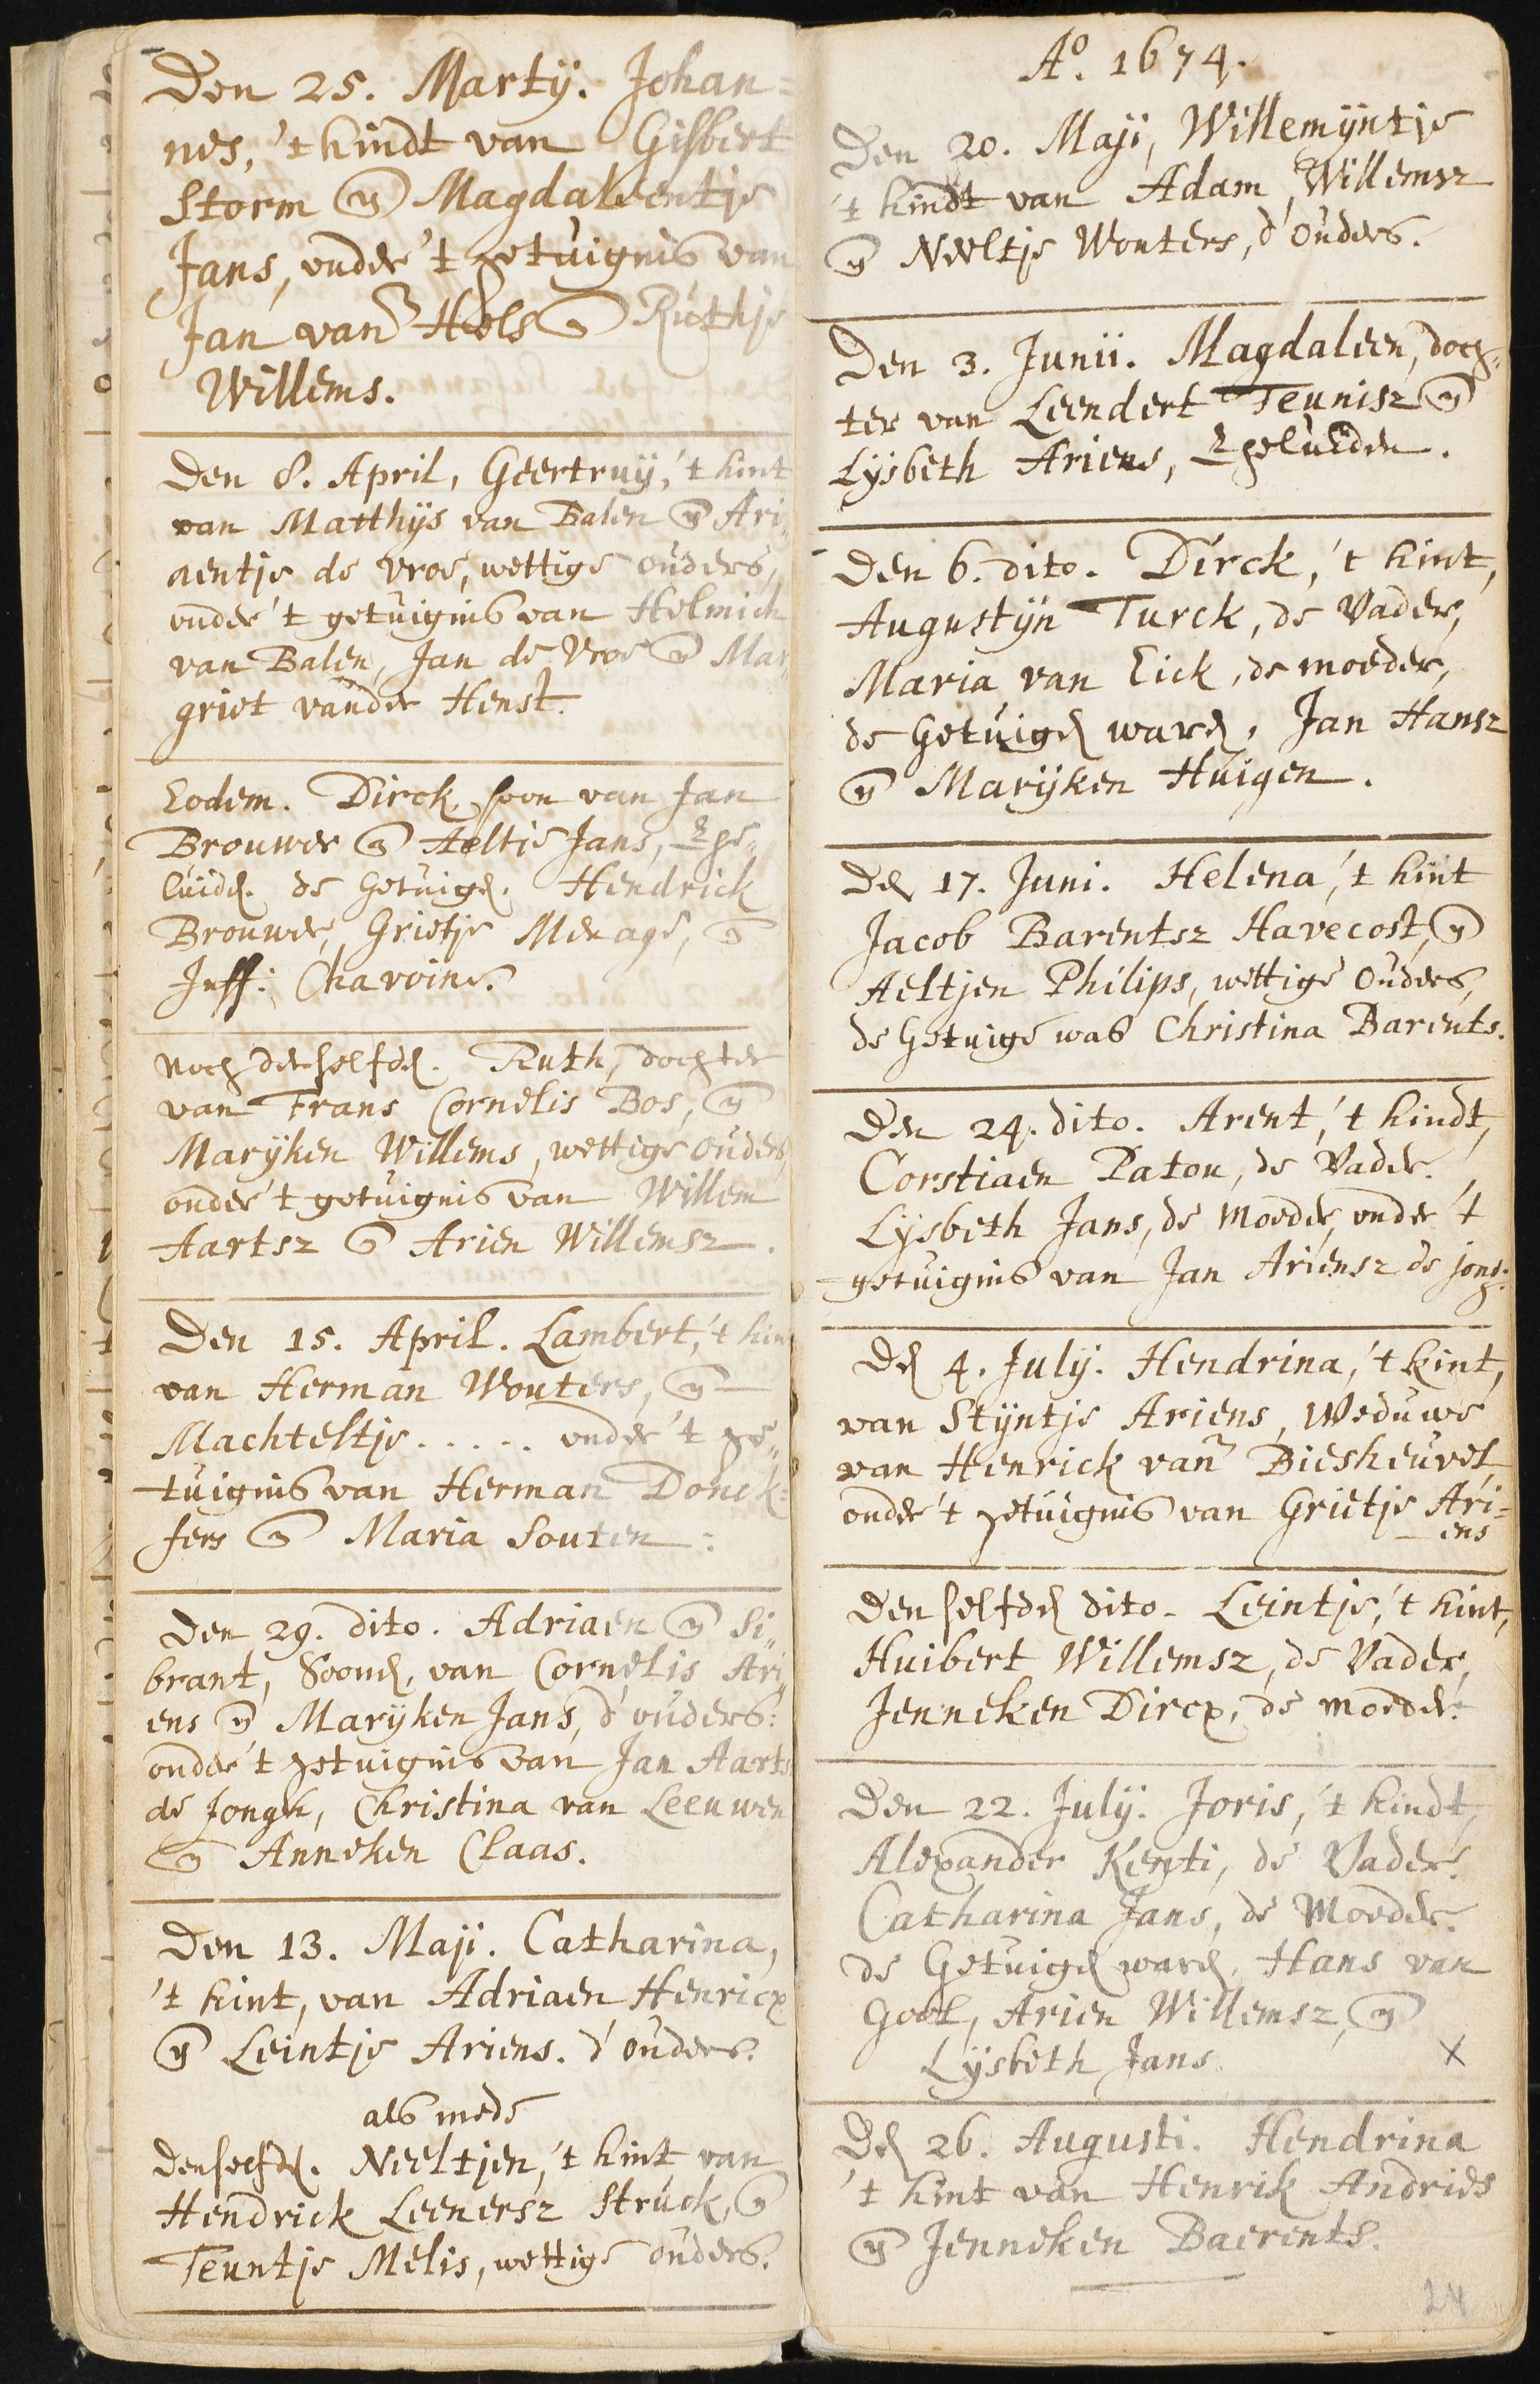 Den 25. Martÿ. Johan=
nes, 't kindt van Gisbert
Storm en Magdaleentje
Jans, onder 't getuignis van
Jan van Hels en Ruthje
Willems.
Den 8. April, Geertruÿ, 't kint
van Matthÿs van Balen en Ari„
aentje de Vroe, wettige ouders,
onder 't getuignis van Helmich
van Balen, Jan de Vroe en Mar„
griet vander Henst.
Eodem. Dirck, soon van Jan
Brouwer en Aeltie Jans, Ege„
luiden. de Getuigen. Hendrick
Brouwer, Grietje Menage, en
Juff: Chavoine.
Noch denselfden. Ruth, dochter
van Frans Cornelis Bos, en
Marÿken Willems, wettige ouders,
onder 't getuignis van Willem
Aartsz en Arien Willemsz.
Den 15. April. Lambert, 't kin
van Herman Wouters, en
Machteltje ..... onder 't ge„
tuignis van Herman Donck=
fers en Maria Souten:
Den 29. dito. Adriaen en Si„
brant, Soonen, van Cornelis Ari„
ens en Marÿken Jans, d' ouders:
onder 't getuignis van Jan Aarts
de Jongh, Christina van Leeuwen
en Anneken Claas.
Den 13. Maji. Catharina,
't kint, van Adriaen Henricx
en Leintje Ariens. d' ouders.
als mede
denselfden. Neeltjen, 't kint van
Hendrick Leenersz Struck, en
Teuntje Melis, wettige ouders.
Ao. 1674.
Den 20. Maji, Willemÿntje
't kindt van Adam Willemsz
en Neeltje Wouters, d' Ouders.
Den 3. Junii. Magdaleen, doch„
ter van Leendert Teunisz en
Lÿsbeth Ariens, Egeluiden.
Den 6. dito. Dirck, 't kint,
Augustÿn Turck, de Vader,
Maria van Eick, de moeder,
de Getuigen waren, Jan Hansz
en Marÿken Huigen.
Den 17. Juni. Helena, 't kint
Jacob Barentsz Havecost, en
Aeltjen Philips, wettige Ouders,
de Getuige was Christina Barents.
Den 24. dito. Arent, 't kindt,
Corstiaen Paton, de Vader.
Lÿsbeth Jans, de Moeder, onder 't
getuignis van Jan Ariensz de jong:
Den 4. Julÿ. Hendrina, 't kint,
van Stÿntje Ariens, Weduwe
van Henrick van Biesheuvel
onder 't getuignis van Grietje Ari=
ens
Den selfden dito. Leintje, 't kint,
Huibert Willemsz, de Vader,
Jenneken Dircx, de moeder.
Den 22. Julÿ. Joris, 't kindt,
Alexander Kenti, de Vader.
Catharina Jans, de Moeder.
de Getuigen waren, Hans van
Gool, Arien Willemsz, en
Lÿsbeth Jans. x
Den 26. Augusti. Hendrina
't kint van Henrik Andries
en Jenneken Baerents.
24